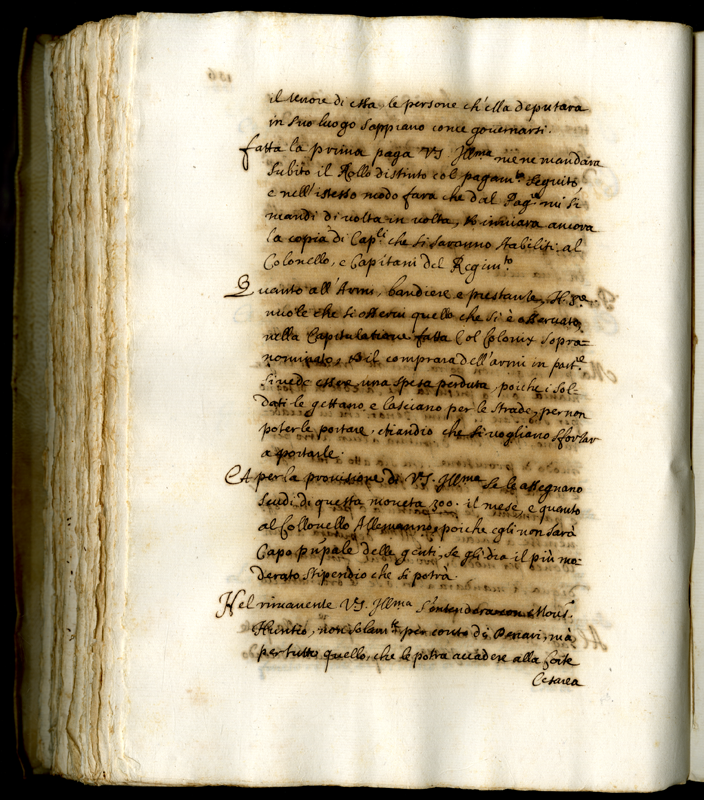 il tenore di essa le persone ch'ella deputara
in suo luogo sappiano come governarsi.
fatta la prima paga VS Illma me ne mandara
subito il Rollo distinto col pagamto seguito,
e nell'istesso modo fara che dal Pagre mi si
mandi di volta in volta, inviara ancora
la copia di Capli che si saranno stabiliti al
Colonello, e Capitani del Regimto
Quanto all'Armi, bandiere e prestante, N. Sre
vuole che si osservi quello che si è osservato,
nella Capitulatione fatta Col Colonx sopra=
nominato, il comprara dell'armi in parte
si vede essere una spesa perduta, poiche i sol-
dati le gettano, e lasciano per le strade, per non
poterle portare, etiandio che si vogliano sforzar
a portarle.
Et per la provisione di VS. Illma se le assegnano
scudi di questa moneta 300. il mese, e quanto
al Collonello Allemanno, poiche egli non sarà
Capo prïpale delle genti, se gli dia il più mo
derato stipendio che si potrà.
Nel rimanente VS. Illma s'intenderà con Mons.
Nuntio, non solamte per conto di Denari, mà
per tutto quello, che le potra accadere alla Corte
Cesarea